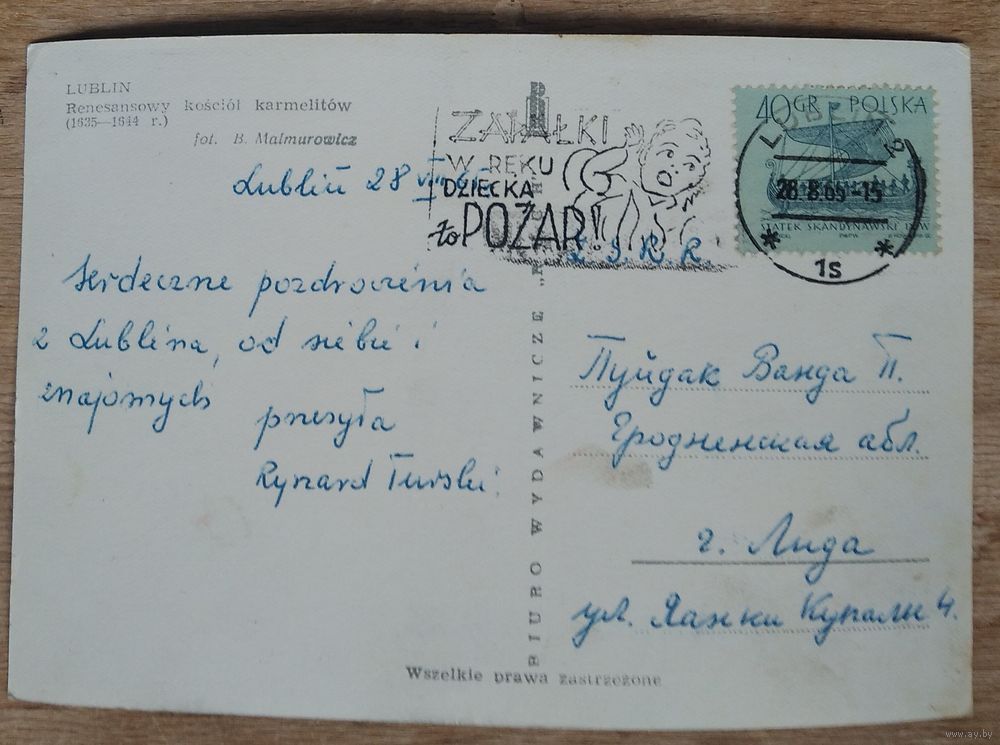 LUBLIN
Renesansowy kościół karmelitów
(1635—1644 r.)
fot. B. Malmurowicz
Lublin 28 VIII 65
Serdeczne pozdrowienia
z Lublina, od siebie i
znajomych
przesyła
Ryszard Turski
ZAPAŁKI
W RĘKU
DZIECKA
to POŻAR!
40 GR POLSKA
LUBLIN 2
28.8.65-15
1s
STATEK SKANDYNAWSKI IX W
Z.S.R.R.
Пуйдак Ванда П.
Гродненская абл.
г. Лида
ул. Янки Купали 4.
BIURO WYDAWNICZE „RUCH”
Wszelkie prawa zastrzeżone
www.ay.by